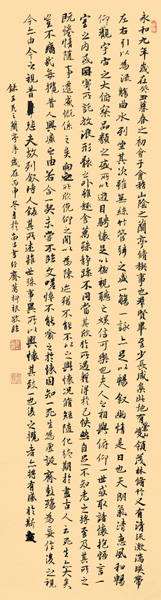 永和九年歲在癸丑暮春之初會于會稽山陰之蘭亭修稧事也群賢畢至少長咸集此地有崇山峻領茂林修竹又有清流激湍暎帶
左右引以為流觴曲水列坐其次雖無絲竹管絃之盛一觴一詠亦足以暢敘幽情是日也天朗氣清惠風和暢
仰觀宇宙之大俯察品類之盛所以遊目騁懷足以極視聽之娛信可樂也夫人之相與俯仰一世或取諸懷抱悟言一
室之內或因寄所託放浪形骸之外雖趣舍萬殊靜躁不同當其欣於所遇暫得於己快然自足不知老之將至及其所之
既惓情隨事遷感慨係之矣向之所欣俛仰之間以為陳迹猶不能不以之興懷況脩短隨化終期於盡古人云死生亦大矣
豈不痛哉每攬昔人興感之由若合一契未嘗不臨文嗟悼不能喻之於懷固知一死生為虛誕齊彭殤為妄作後之視
今亦由今之視昔悲夫故列敘時人錄其所述雖世殊事異所以興懷其致一也後之攬者亦將有感於斯文
王羲之蘭亭序歲在丙申冬月於